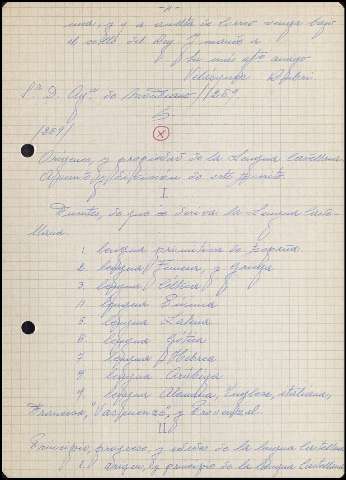 -4-
una, q y a vuelta de Correo venga bajo
el sello del Rey, y mande a
su mas afto amigo
Velasquez
Sr. D. Agn. de Montiano //259
S
/259/
Origenes, y propiedad de la Lengua Castellana.
Apuntes, y
I.
Fuentes, de que se deriva la Lengua Caste-
llana
1. Lengua primitiva de España
2. Lengua Fenicia, y Griega
3. Lengua Céltica
4. Lengua Púnica
5. Lengua Latina
6. Lengua Gótica
7. Lengua Hebrea
8. Lengua Arábiga
9. Lengua Alemana, Inglesa, italiana,
Francesa, Vascuence, y Provenzal.
II.
Principio, progreso, y edades de la lengua Castellana
1. Origen, y principio de la Lengua Castellana